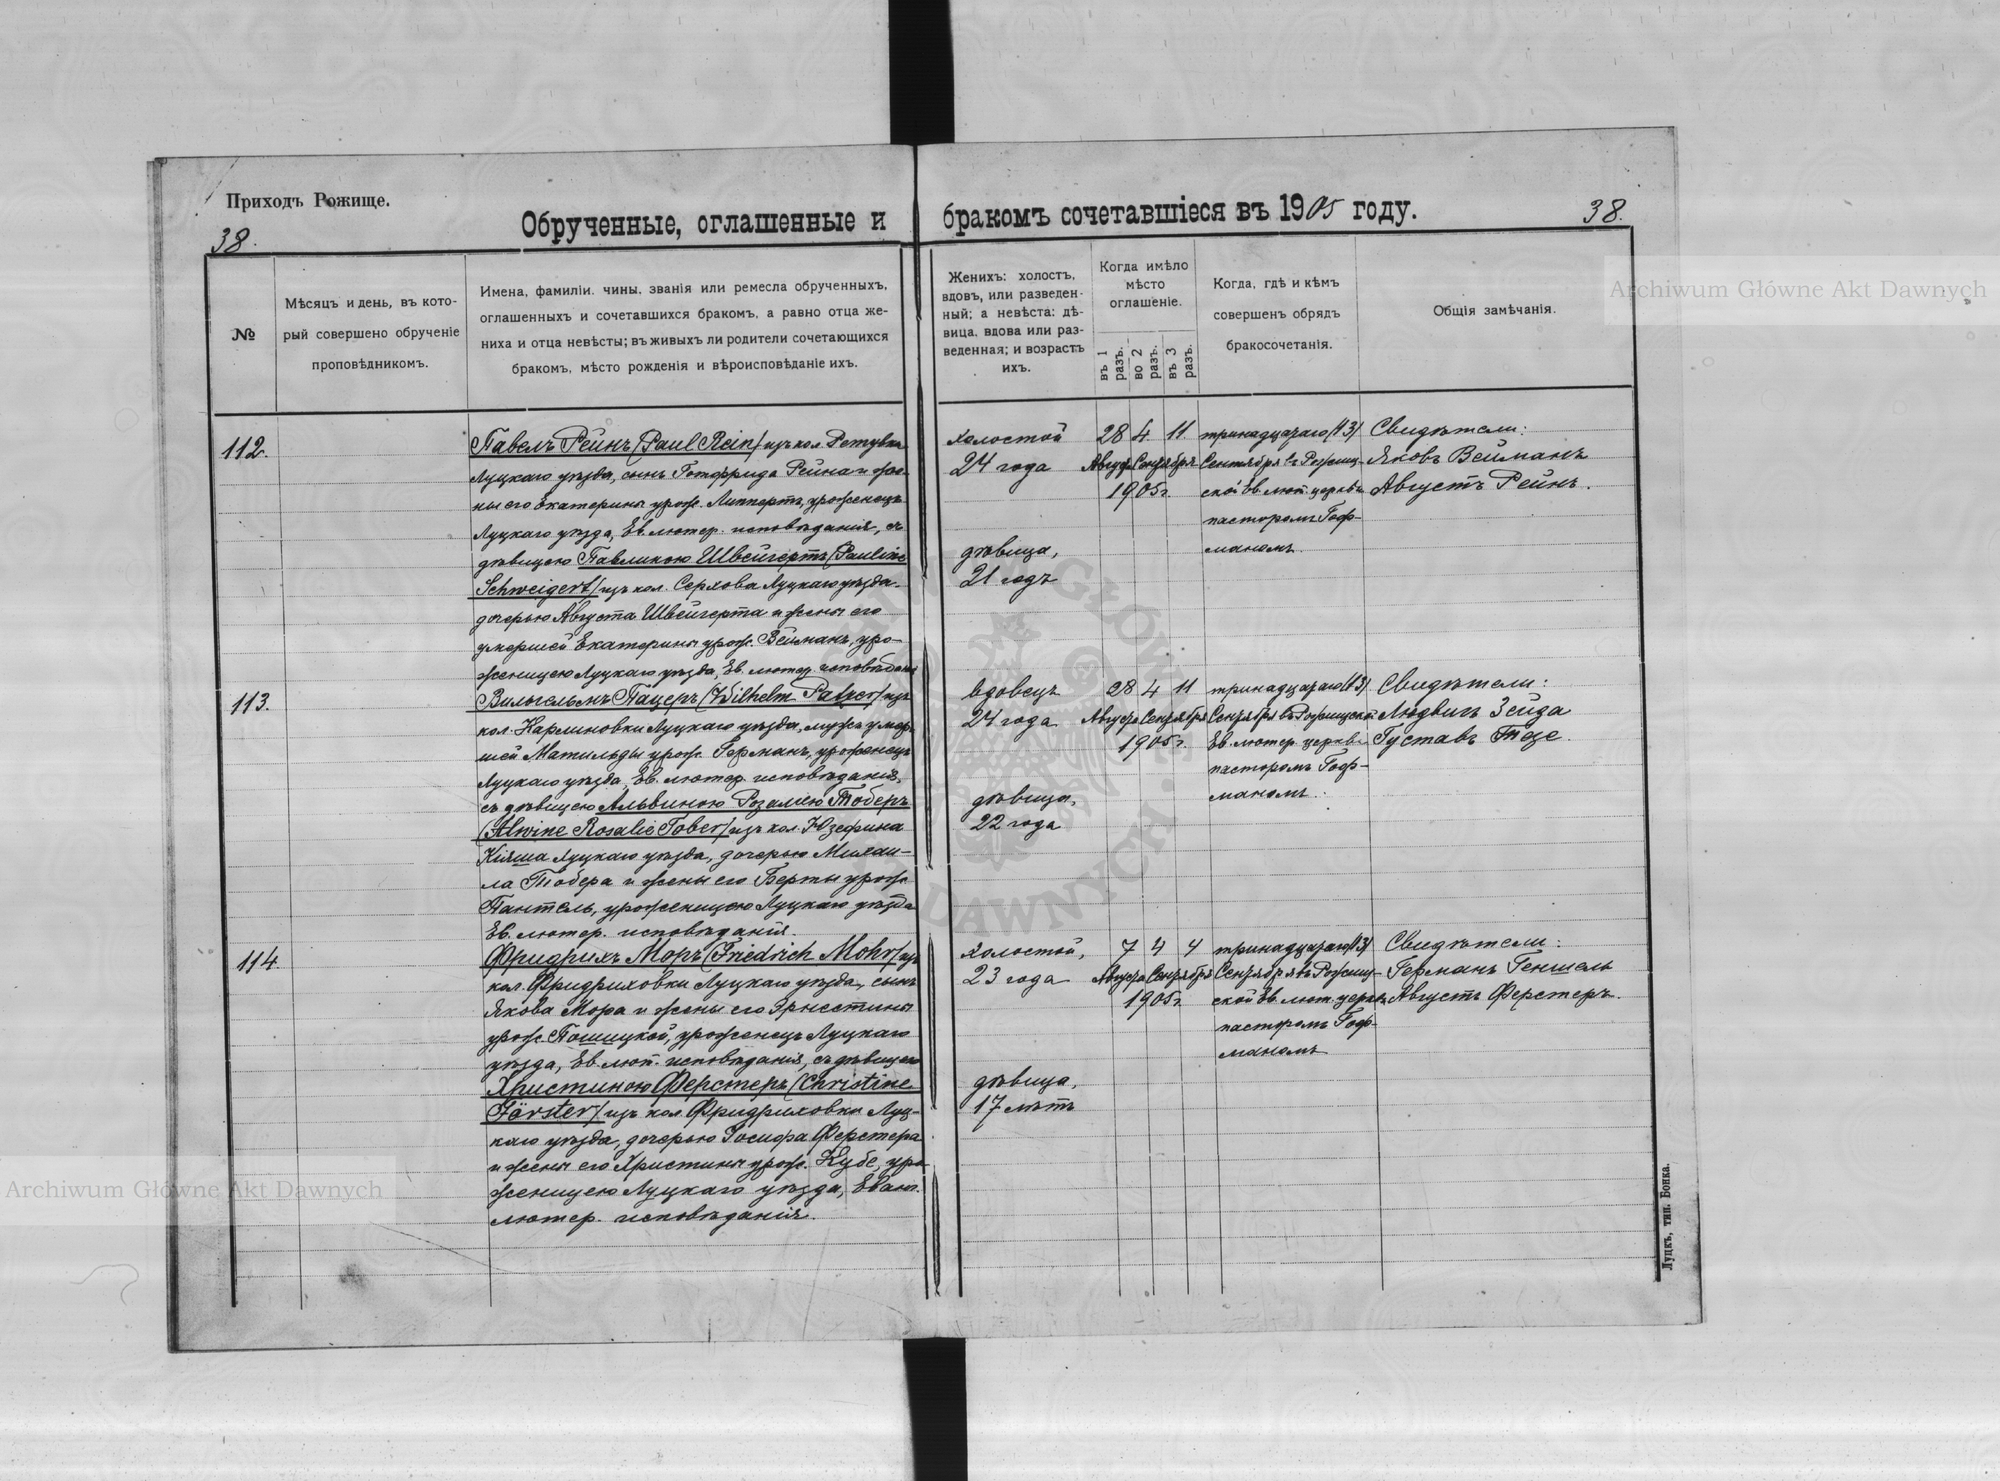 Приходъ Рожище.
38.
Обрученные, оглашенные и бракомъ сочетавшіеся въ 1905 году.
38.
№
Мѣсяцъ и день, въ кото-
рый совершено обрученіе
проповѣдникомъ.
Имена, фамиліи, чины, званія или ремесла обрученныхъ,
оглашенныхъ и сочетавшихся бракомъ, а равно отца же-
ниха и отца невѣсты; въ живыхъ ли родители сочетающихся
бракомъ, мѣсто рожденія и вѣроисповѣданіе ихъ.
Женихъ: холостъ,
вдовъ, или разведен-
ный; а невѣста: дѣ-
вица, вдова или раз-
веденная; и возрастъ
ихъ.
Когда имѣло
мѣсто
оглашеніе.
въ 1 разъ.
во 2 разъ.
въ 3 разъ.
Когда, гдѣ и кѣмъ
совершенъ обрядъ
бракосочетанія.
Общія замѣчанія.
112.
Павелъ Рейнъ (Paul Rein) изъ кол. Ретувка
Луцкаго уѣзда, сынъ Готфрида Рейна и же-
ны его Екатерины урож. Липпертъ, уроженецъ
Луцкаго уѣзда, Ев. лютер. исповѣданія, съ
дѣвицею Павлиною Швейгертъ (Pauline
Schweigert) изъ кол. Серхова Луцкаго уѣзда,
дочерью Августа Швейгерта и жены его
умершей Екатерины урож. Вейманъ, уро-
женицею Луцкаго уѣзда, Ев. лютер. исповѣданія
холостой
24 года
дѣвица,
21 годъ
28 4 11
Августа Сентября
1905 г.
тринадцатаго (13)
Сентября въ Рожищ-
ской Ев. лют. церкви
пасторомъ Гоф-
маномъ.
Свидѣтели:
Яковъ Вейманъ
Августъ Рейнъ.
113.
Вильгельмъ Пацеръ (Wilhelm Patzer) изъ
кол. Каролиновки Луцкаго уѣзда, мужъ умер-
шей Матильды урож. Германъ, уроженецъ
Луцкаго уѣзда, Ев. лютер. исповѣданія,
съ дѣвицею Альвиною Розаліею Тоберъ
(Alwine Rosalie Tober) изъ кол. Юзефина
Луцкаго уѣзда, дочерью Михаи-
ла Тобера и жены его Берты урож.
Пантель, уроженицею Луцкаго уѣзда
Ев. лютер. исповѣданія.
вдовецъ
24 года
дѣвица,
22 года
28 4 11
Августа Сентября
1905 г.
тринадцатаго (13)
Сентября въ Рожищской
Ев. лютер. церкви
пасторомъ Гоф-
маномъ.
Свидѣтели:
Людвигъ Зейда
Густавъ Теце.
114.
Фридрихъ Моръ (Friedrich Mohr) изъ
кол. Фридриховки Луцкаго уѣзда, сынъ
Якова Мора и жены его Эрнестины
урож. Пошицкой, уроженецъ Луцкаго
уѣзда, Ев. лют. исповѣданія, съ дѣвицею
Христиною Ферстеръ (Christine
Förster) изъ кол. Фридриховки Луц-
каго уѣзда, дочерью Іосифа Ферстера
и жены его Христины урож. Кубе, уро
женицею Луцкаго уѣзда, Еванг.
лютер. исповѣданія.
холостой,
23 года
дѣвица,
17 лѣтъ
7 4 4
Августа Сентября
1905 г.
тринадцатаго (13)
Сентября въ Рожищ-
ской Ев. лют. церкви
пасторомъ Гоф-
маномъ
Свидѣтели:
Германъ Геншель
Августъ Ферстеръ.
Луцкъ, тип. Бонка.
Archiwum Główne Akt Dawnych
Archiwum Główne Akt Dawnych